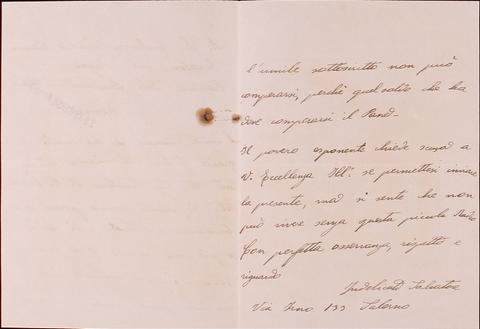 l'umile sottoscritto non può
comperarsi, perchè quel soldo che ha
deve comperarsi il Pane.
Il povero esponente chiede scusa a
V. Eccellenza Ill. se permettesi inviare
la presente, ma si sente che non
può vivere senza questa piccola Radio
Con perfetta osservanza, rispetto e
riguardo
Indelicato Salvatore
Via Irno 133 Salerno